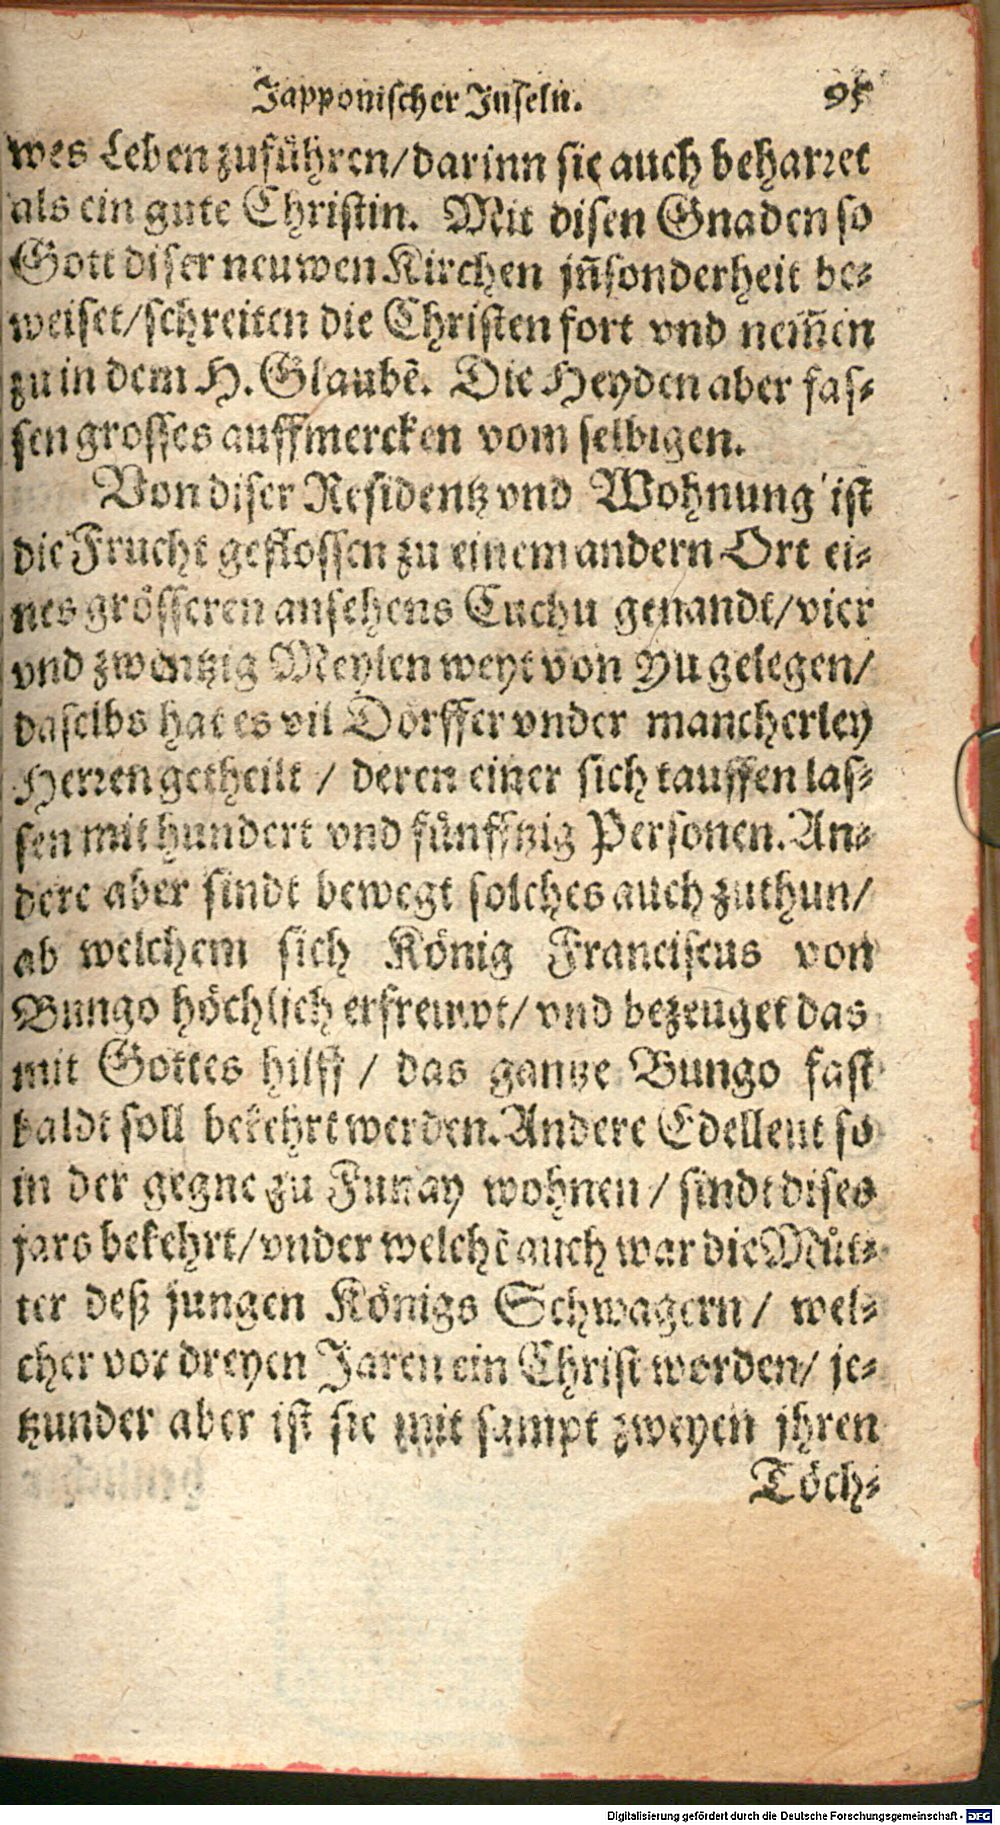 Japponischer Inseln. 95
wes Leben zuführen/ darinn sie auch beharret
als ein gute Christin. Mit disen Gnaden so
Gott diser neuwen Kirchen jñsonderheit be-
weiset/ schreiten die Christen fort vnd nem̃en
zu in dem H. Glaubẽ. Die Heyden aber fas-
sen grosses auffmercken vom selbigen.
Von diser Residentz vnd Wohnung ist
die Frucht geflossen zu einem andern Ort ei-
nes grösseren ansehens Cuchu genandt/ vier
vnd zwentzig Meylen weyt von Yu gelegen/
daselbs hat es vil Dörffer vnder mancherley
Herren getheilt / deren einer sich tauffen las-
sen mit hundert vnd fünfftzig Personen. An-
dere aber sindt bewegt solches auch zuthun/
ab welchem sich König Franciscus von
Bungo höchlich erfreuwt/ vnd bezeuget das
mit Gottes hilff / das gantze Bungo fast
baldt soll bekehrt werden. Andere Edelleut so
in der gegne zu Funay wohnen / sindt dises
jars bekehrt/ vnder welchẽ auch war die Můt-
ter deß jungen Königs Schwagern/ wel-
cher vor dreyen Jaren ein Christ worden/ je-
tzunder aber ist sie mit sampt zweyen jhren
Töch-
Digitalisierung gefördert durch die Deutsche Forschungsgemeinschaft - DFG